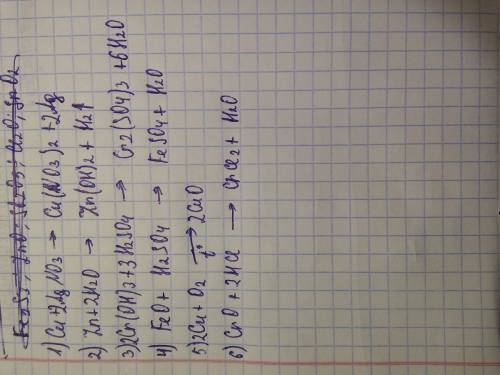 1) Cu+2AgNO3 → Cu(NO3)2 + 2Ag
2) Zn+2H2O → Zn(OH)2 + H2↑
3) 2Cr(OH)3+3H2SO4 → Cr2(SO4)3 + 6H2O
4) FeO + H2SO4 → FeSO4 + H2O
5) 2Cu+O2 t° → 2CuO
6) CrO + 2HCl → CrCl2 + H2O